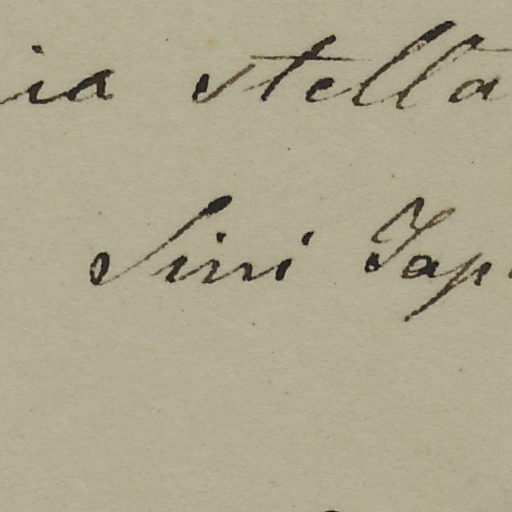 ia stella
Sini Jap